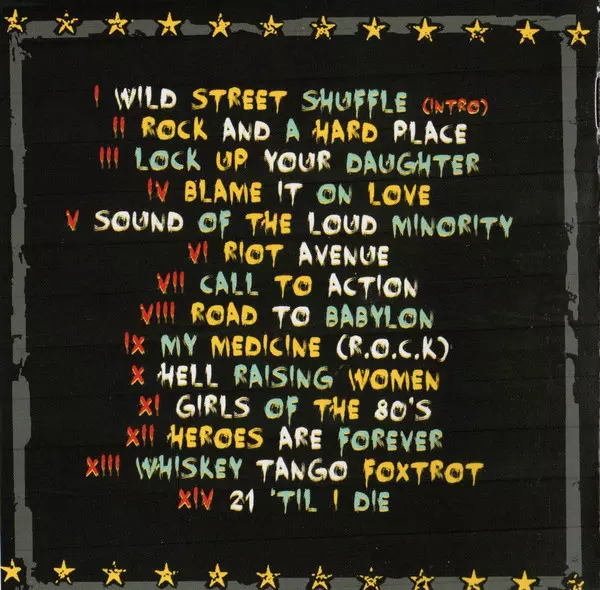 I WILD STREET SHUFFLE (INTRO)
II ROCK AND A HARD PLACE
III LOCK UP YOUR DAUGHTER
IV BLAME IT ON LOVE
V SOUND OF THE LOUD MINORITY
VI RIOT AVENUE
VII CALL TO ACTION
VIII ROAD TO BABYLON
IX MY MEDICINE (R.O.C.K)
X HELL RAISING WOMEN
XI GIRLS OF THE 80'S
XII HEROES ARE FOREVER
XIII WHISKEY TANGO FOXTROT
XIV 21 'TIL I DIE